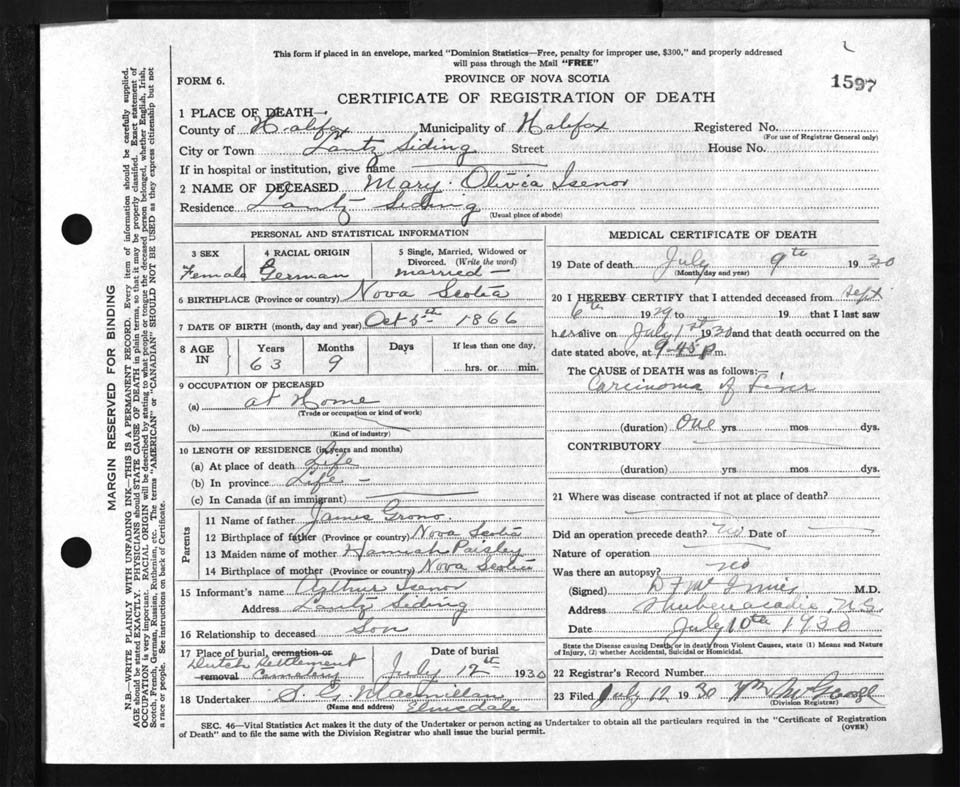 This form if placed in an envelope, marked "Dominion Statistics—Free, penalty for improper use, $300," and properly addressed
will pass through the Mail "FREE"
FORM 6.
PROVINCE OF NOVA SCOTIA
1597
CERTIFICATE OF REGISTRATION OF DEATH
1 PLACE OF DEATH—
County of Halifax Municipality of Halifax Registered No.
(For use of Registrar General only)
City or Town Lantz Siding Street House No.
If in hospital or institution, give name
2 NAME OF DECEASED Mary Olivia Isenor
Residence Lantz Siding
(Usual place of abode)
PERSONAL AND STATISTICAL INFORMATION
3 SEX 4 RACIAL ORIGIN 5 Single, Married, Widowed or
Divorced. (Write the word)
Female German married
6 BIRTHPLACE (Province or country) Nova Scotia
7 DATE OF BIRTH (month, day and year) Oct 5th 1866
8 AGE IN Years Months Days If less than one day,
63 9 hrs. or min.
9 OCCUPATION OF DECEASED
(a) at Home
(Trade or occupation or kind of work)
(b)
(Kind of industry)
10 LENGTH OF RESIDENCE (in years and months)
(a) At place of death Life
(b) In province Life -
(c) In Canada (if an immigrant)
Parents
11 Name of father James Grono
12 Birthplace of father (Province or country) Nova Scotia
13 Maiden name of mother Hannah Paisley
14 Birthplace of mother (Province or country) Nova Scotia
15 Informant's name Arthur Isenor
Address Lantz Siding
16 Relationship to deceased Son
17 Place of burial, cremation or Date of burial
Dutch Settlement
removal Cemetery July 12th 1930
18 Undertaker S. G. Macmillan
(Name and address) Elmsdale
MEDICAL CERTIFICATE OF DEATH
19 Date of death July 9th 1930
(Month, day and year)
20 I HEREBY CERTIFY that I attended deceased from Sept
6th 1929 to 19 that I last saw
her alive on July 1st 1930 and that death occurred on the
date stated above, at 9-45 p m.
The CAUSE of DEATH was as follows:
Carcinoma of Liver
(duration) One yrs mos dys.
CONTRIBUTORY
(duration) yrs mos dys.
21 Where was disease contracted if not at place of death?
Did an operation precede death? no Date of
Nature of operation
Was there an autopsy? no
(Signed) D F McInnis M.D.
Address Shubenacadie, N.S.
Date July 10th 1930
State the DISEASE causing Death, or in death from Violent Causes, state (1) Means and Nature
of Injury, (2) whether Accidental, Suicidal or Homicidal.
22 Registrar's Record Number
23 Filed July 12 1930
(Division Registrar)
SEC. 46—Vital Statistics Act makes it the duty of the Undertaker or person acting as Undertaker to obtain all the particulars required in the "Certificate of Registration
of Death" and to file the same with the Division Registrar who shall issue the burial permit. (OVER)
MARGIN RESERVED FOR BINDING
N.B.—WRITE PLAINLY WITH UNFADING INK—THIS IS A PERMANENT RECORD. Every item of information should be carefully supplied.
AGE should be stated EXACTLY. PHYSICIANS should STATE CAUSE OF DEATH in plain terms, so that it may be properly classified. Exact statement of
OCCUPATION is very important. RACIAL ORIGIN will be described by stating to what people or tongue the deceased person belonged, whether English, Irish,
Scotch, French, German, Russian, Ruthenian, etc. The terms "AMERICAN" or "CANADIAN" SHOULD NOT BE USED as they express citizenship but not
a race or people. See instructions on back of Certificate.